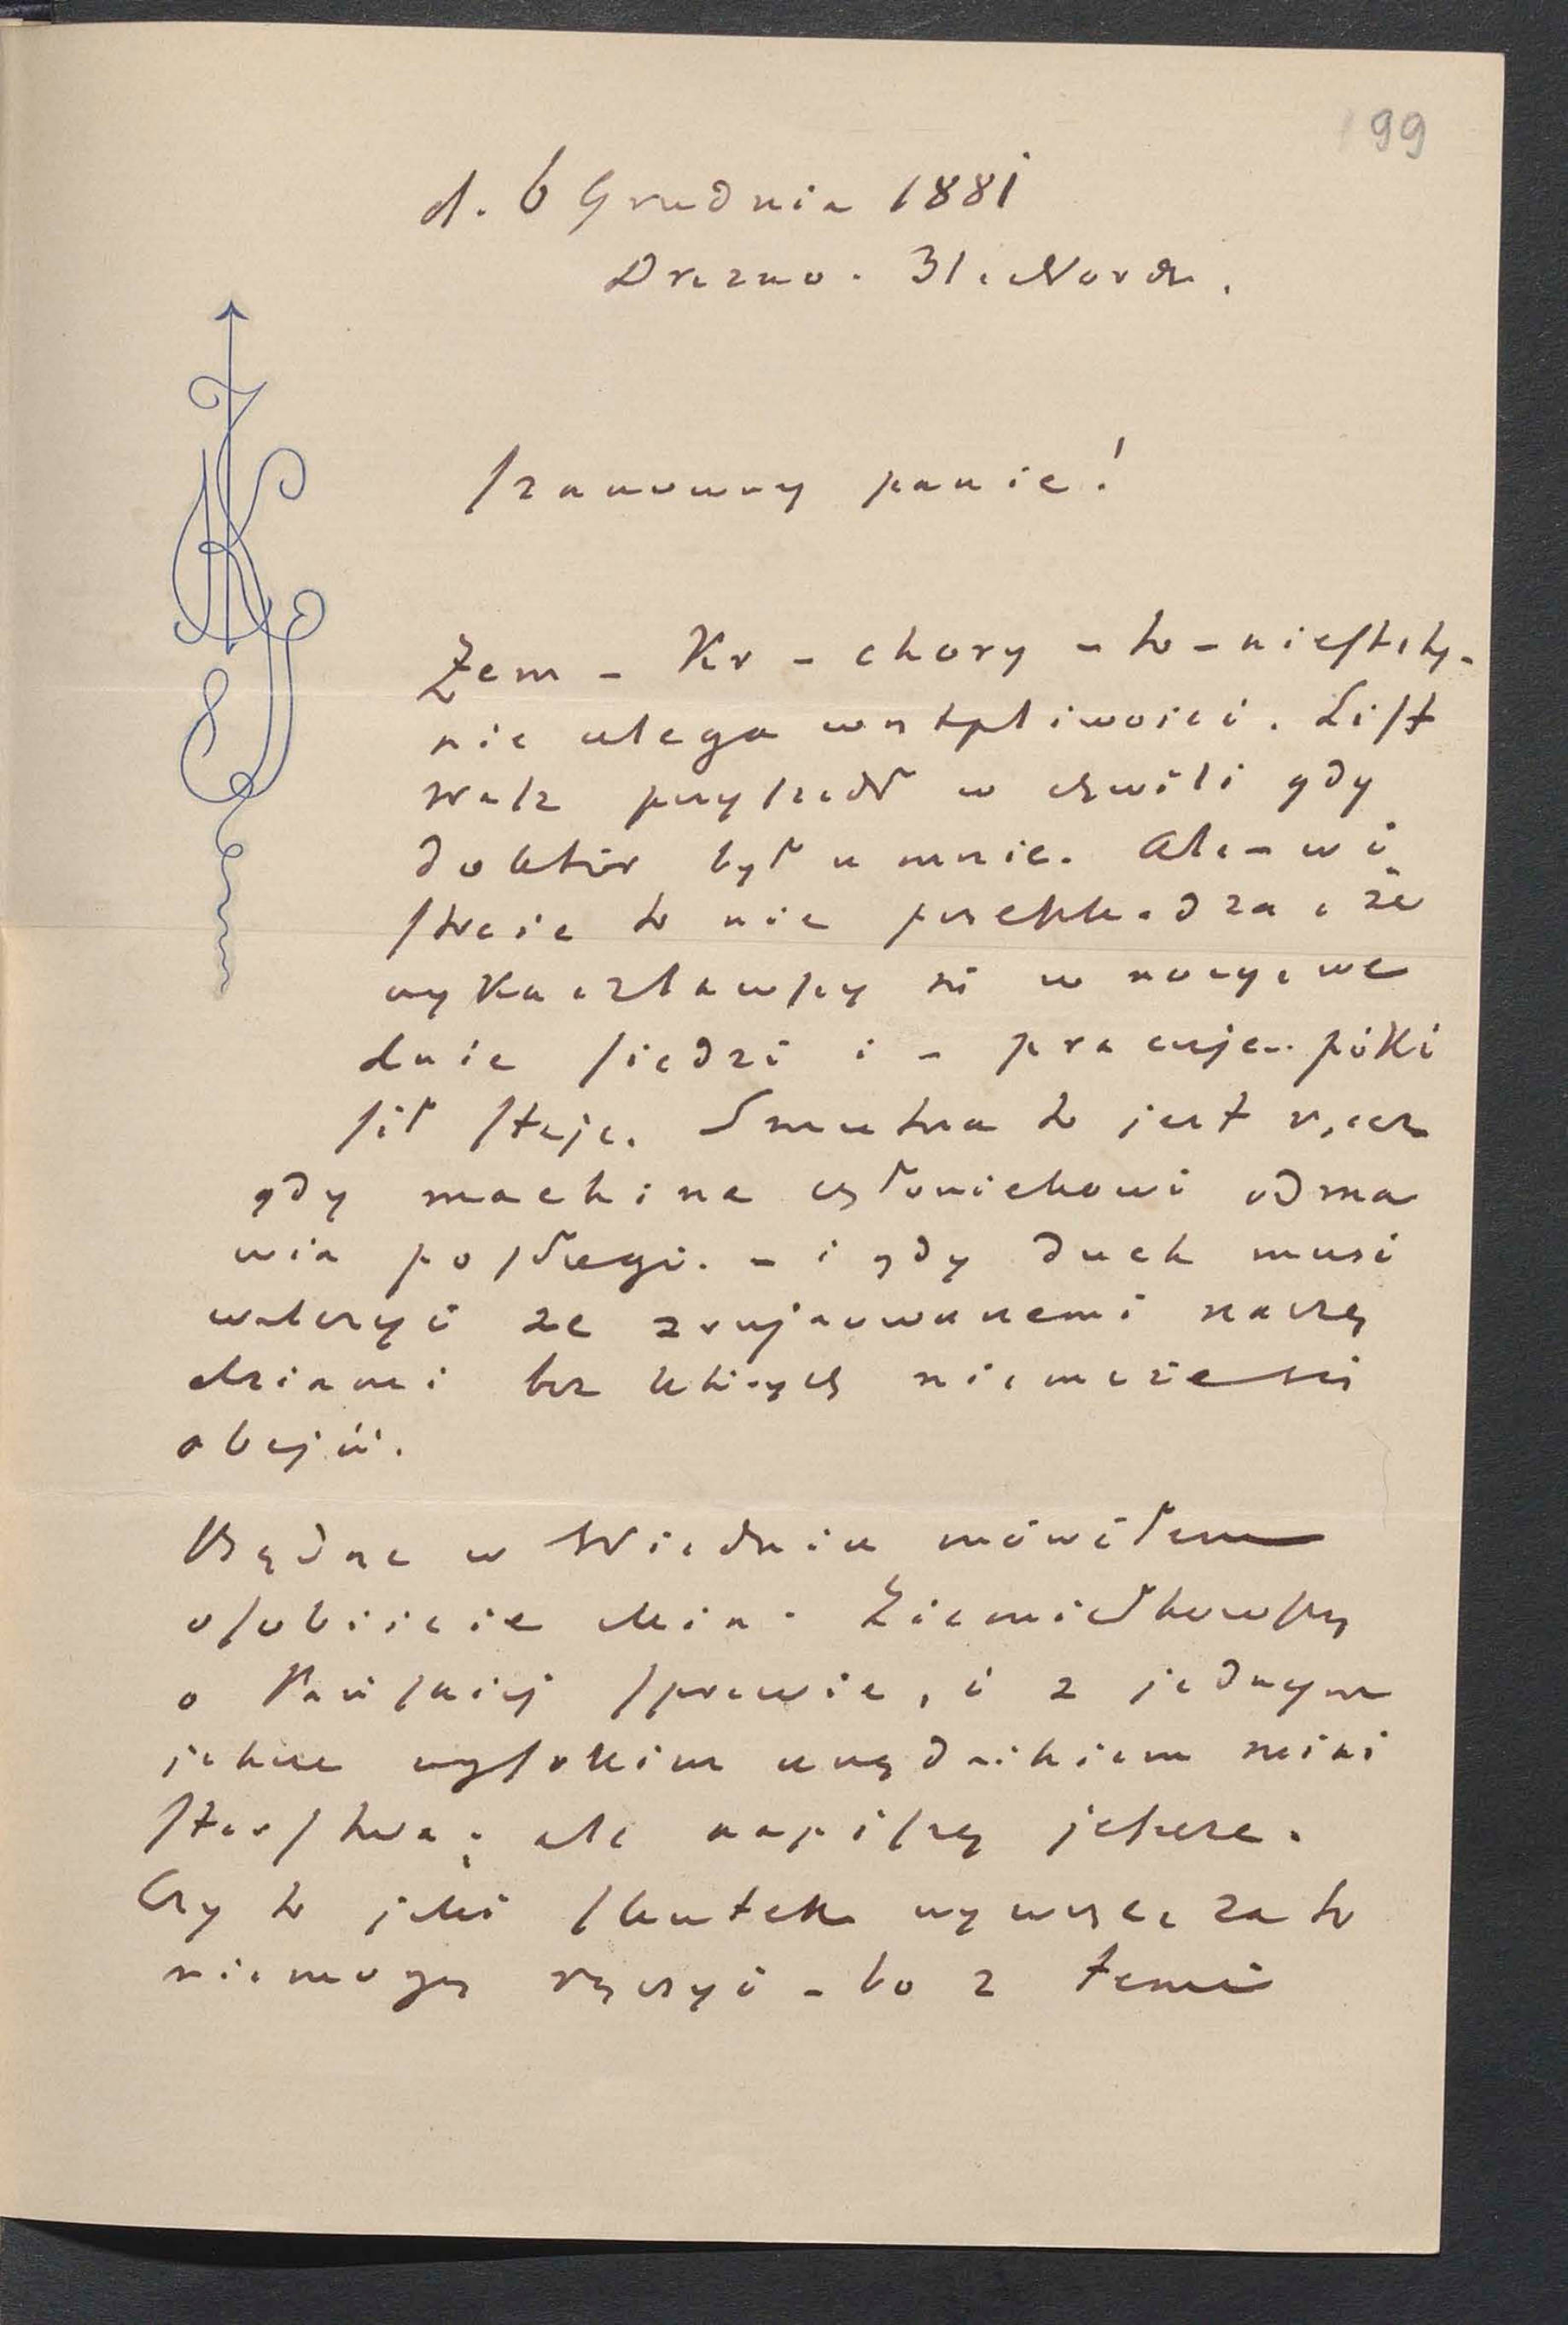 99
d. 6 Grudnia 1881
Drezno. 31. Nordst.
Szanowny panie!
Żem – Kr – chory – to – niestety –
nie ulega wątpliwości. List
Wasz przyszedł w chwili gdy
doktór był u mnie. Ale – w i
stocie to nie przeszkadza, że
wykaszlawszy się w nocy, we
dnie siedzi i – pracuje – póki
sił staje. Smutna to jest rzecz
gdy machina człowiekowi odma
wia posługi. – i gdy duch musi
walczyć ze zrujnowanemi narzę
dziami bez których niemoże się
obejść.
Będąc w Wiedniu mówiłem
osobiście Min. Ziemiałkowsky
o Pańskiej sprawie, i z jednym
jeszcze wysokim urzędnikiem mini
sterstwa; ale napiszę jeszcze.
Czy to jaki skutek wywrze, za to
niemogę ręczyć – bo z temi